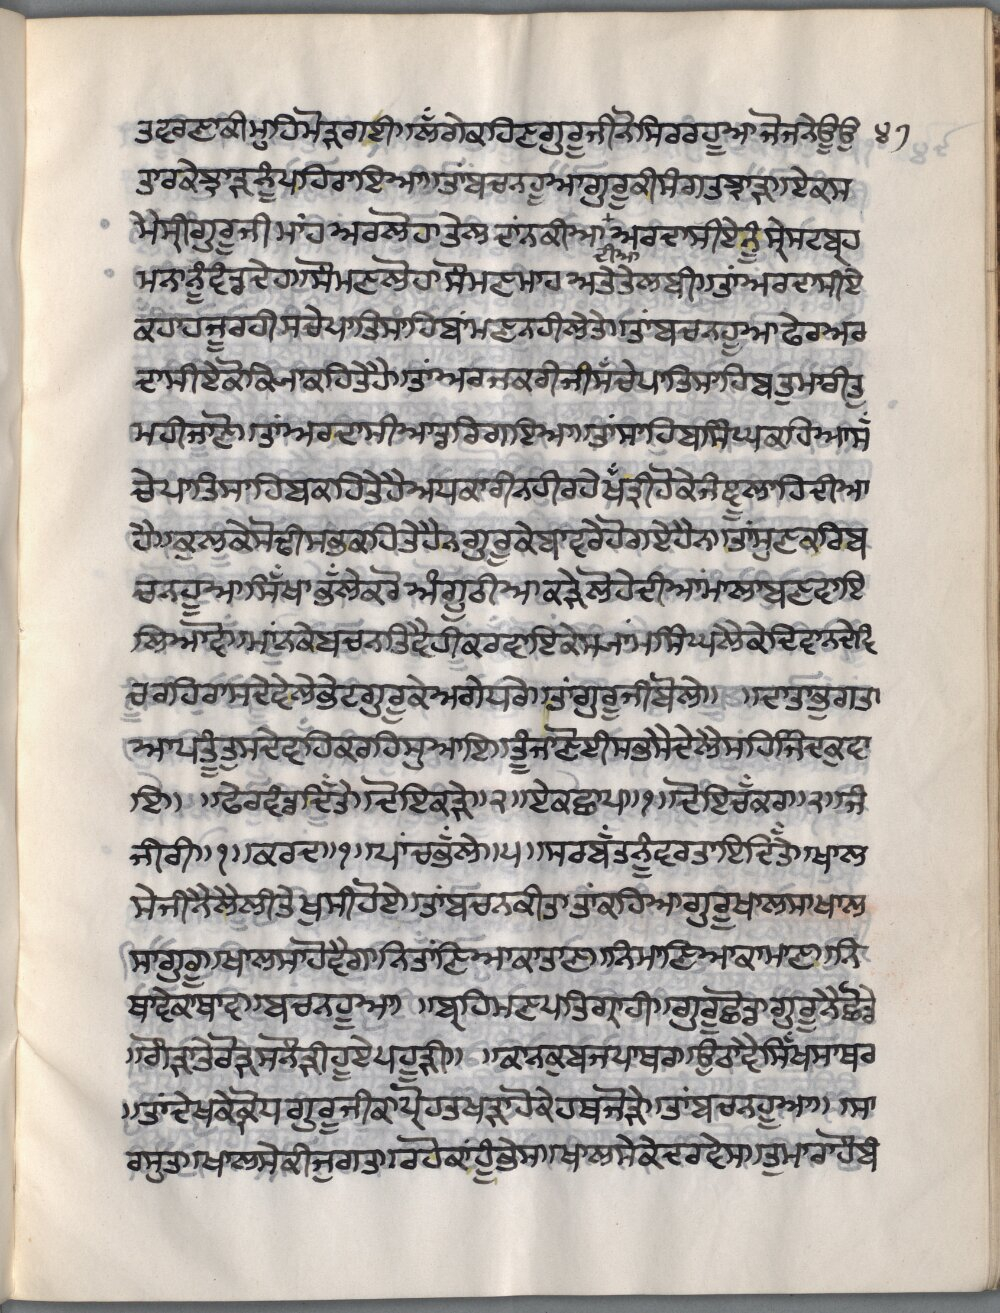 ਤਦਰਣਾਕੀਮੁਹਿਮੋੜਗਈ॥ਲੱਗੇਕਹਿਣਗੁਰੂਜੀਨੋਸਿਰਰਹੂਆਜੋਜਨੇਊਉ ੪੭
ਤਾਰਕੇਝਾੜਨੂੰਪਹਿਰਾਇਆ॥ਤਾਂਬਚਨਹੂਆਗੁਰੂਕੀਸੰਗਤਝਾੜ੍ਹਾਏਕਸ
ਮੇਸ੍ਰੀਗੁਰੂਜੀਮਾਂਹਅਰਲੋਹਾਤੇਲਦਾਂਨਕੀਆ ਅਰਦਾਸੀਏਨੂੰਸ੍ਰੇਸਟਬ੍ਰਹ
ਦੀਆ
ਮਨਾਨੂੰਵੰਨੁਦੇਹਾ॥ਸੌਮਣਲੋਹਾਸੌਮਣਮਾਹਅਤੇਤੇਲਬੀ॥ਤਾਂਅਰਦਾਸੀਏ
ਕਹਾਹਜੂਰਹੀਸਚੇਪਾਤਿਸਾਹਿਬਾਂਮਣਨਹੀਲੇਤੇ॥ਤਾਂਬਚਨਹੂਆਫੇਰਅਰ
ਦਾਸੀਏਕੋਕਿਆਕਹਿਤੇਹੈ॥ਤਾਂਅਰਜਕਰੀਜੀਸੱਚੇਪਾਤਿਸਾਹਿਬਤੁਮਾਰੀਤੁ
ਮਹੀਜਾਣੋ॥ਤਾਂਅਰਦਾਸੀਆਤੁਰਿਗਇਆ॥ਤਾਂਸਾਹਿਬਸਿੰਘਕਹਿਆਸੱ
ਚੇਪਾਤਿਸਾਹਿਬਕਹਿਤੇਹੈਅਧਕਾਰੀਨਹੀਰਹੇਖੱਤ੍ਰੀਹੋਕੇਜੰਞੂਲਾਹਿਦੀਆ
ਹੈ॥ਕੁਲਕੇਸੋਢੀਸਭਕਹਿਤੇਹੈਨਗੁਰੂਕੇਬਾਵਰੇਹੋਗਏਹੈਨ॥ਤਾਂਸੁਣਕਰਿਬ
ਚਨਹੂਆ॥ਸਿੱਖਾਭੱਲੇਕਰੋਅੰਗੂਠੀਆਕੜੇਲੋਹੇਦੀਆਂਮਾਲਾਬਣਵਾਇ
ਲਿਆਵੋ॥ਮਾਂਨਕੇਬਚਨਤਿਵੈਹੀਕਰਵਾਇਕੇਸਜਾਂਮਸਿੰਘਲੈਕੇਦਿਵਾਨਦੇਵਿ
ਚਰਹਿਰਾਸਦੇਵੇਲੇਭੇਟਗੁਰੂਕੇਅਗੇਧਰੇ॥ਤਾਂਗੁਰੂਜੀਬੋਲੇ॥ ॥ਦਾਤਾਭੁਗਤਾ
ਆਪਤੂੰਤੁਮਦੇਵਹਿਕਰਹਿਸੁਆਇ॥ਤੂੰਜਾਣੋਈਸਭਸੈਦੇਲੈਸਹਿਜਿੰਦਕਵਾ
ਇ॥ ॥ਫੇਰਵੰਨੁਦਿੱਤੇ॥ਦੋਇਕੜੇ॥੨॥ਏਕਛਾਪ॥੧॥ਦੋਇਚੱਕਰ॥੨॥ਜੰ
ਜੀਰੀ॥੧॥ਕਰਦ॥੧॥ਪਾਂਚਭੱਲੇ॥੫॥ਸਰਬੱਤਨੂੰਵਰਤਾਇਦਿੱਤੇ॥ਖਾਲ
ਸੇਜੀਨੈਲੈਲੀਤੇਖੁਸੀਹੋਏ॥ਤਾਂਬਚਨਕੀਤਾਤਾਂਕਹਿਆਗੁਰੂਖਾਲਸਾਖਾਲ
ਸਾਗੁਰੂ॥ਖਾਲਸਾਹੋਵੈਗਾਨਿਤਾਂਣਿਆਕਾਤਾਣ॥ਨਿਮਾਣਿਆਕਾਮਾਣ॥ਨਿ
ਥਾਵੇਕਾਥਾਵ॥ਬਚਨਹੂਆ॥ ॥ਬ੍ਰਹਿਮਣਪਤਿਗ੍ਰਾਹੀ॥ਗੁਰੂਛੋਡਾਗੁਰੂਨੈਛੋਡੇ
॥ਰੋਗੜਾਤੇਰੋੜਸਨੌੜੀਹੂਏਧਹੂੜੀ॥ ॥ਕਾਨਕੁਬਜਪਾਥਰ॥ਉਨਾਵੈਸਿੱਖਸਾਬਰ
॥ਤਾਂਦੇਖਕੇਕ੍ਰੋਧਗੁਰੂਜੀਕਾਪ੍ਰੋਹਤਖੜਾਹੋਕੇਹਥਜੋੜੇ॥ਤਾਂਬਚਨਹੂਆ॥ ॥ਸਾ
ਰਸੁਤਾ॥ਖਾਲਸੇਕੀਜੁਗਤਾ॥ਰੋਹਕਾਂਹੂੰਭੇਸਾ॥ਖਾਲਸੇਕੇਦਰਵੇਸਾ॥ਤੁਮਾਰਾਹੌਬੰ